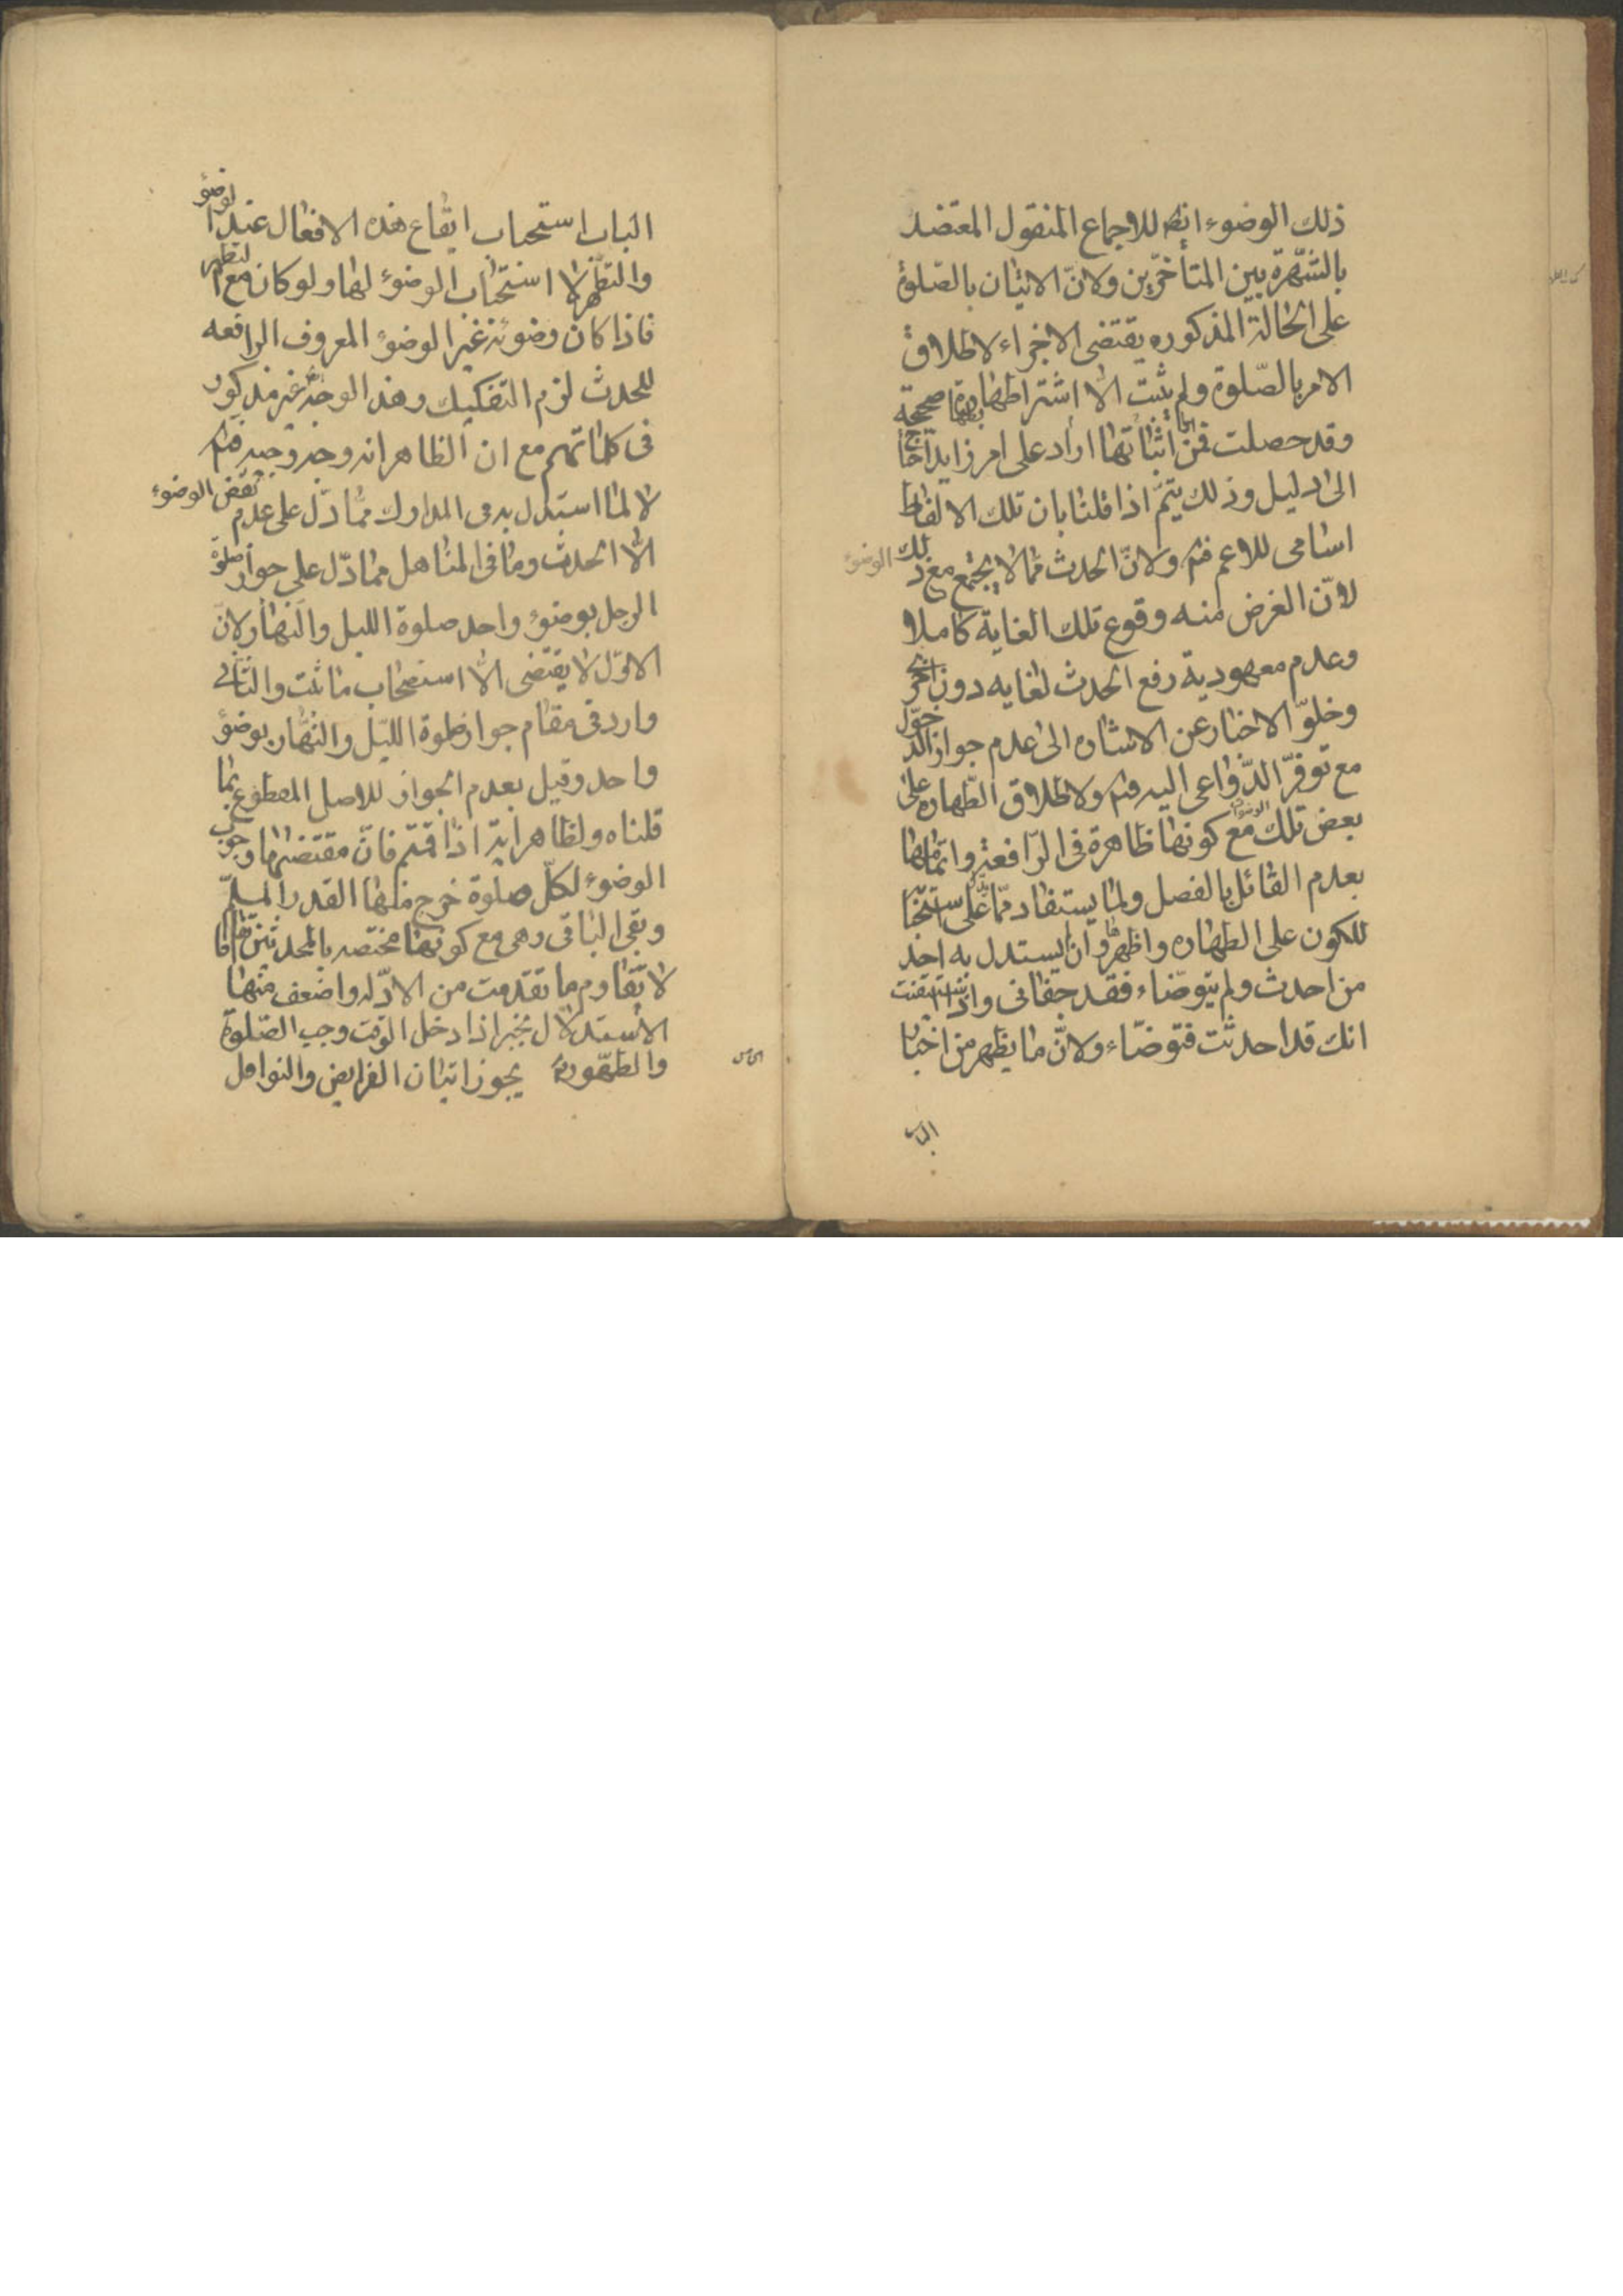 ذلك الوضوء انه للاجماع المنقول المعتضد
بالشهرة بين المتأخرين ولانّ الاتيان بالصّلوة
على الحالة المذكوره يقتضى الاجزاء لاطلاق
الامر بالصّلوة ولم يثبت الّا اشتراطها بطهارة صحيحة
وقد حصلت فمن اثباتها اراد على امر زايد احتاج
الى دليل وذلك يتمّ اذا قلنا بان تلك الالفاظ
اسامى للاعم فتم ولانّ الحدث ممّا لا يجتمع مع ذلك الوضوء
لانّ الغرض منه وقوع تلك الغاية كاملا
وعدم معهودية رفع الحدث لغايه دون اخرى
وخلوّ الاخبار عن الاشاره الى عدم جواز الدخول
مع توفرّ الدّواعى اليه فتم ولاطلاق الطّهاره على
بعض تلك الوضوءات مع كونها ظاهرة فى الرّافعة واتمامها
بعدم القائل بالفصل ولما يستفاد ممّا دلّ على استحبا
للكون على الطهاره واظهر وان يستدل به اخذ
من احدث ولم يتوضّاء فقد جفانى واذا استيقنت
انك قد احدثت فتوضّاء ولانّ ما يظهر من اخبار
الباب
الباب استحباب ايقاع هذه الافعال عند الوضوء
والتطهر لا استحباب الوضوء لها ولو كان مع التطهر
فاذا كان وضوئه غير الوضوء المعروف الرافعه
للحدث لزم التفكيك وهذا الوجه غير مذكور
فى كلماتهم مع ان الظاهر انه وجه وجيه فتم
لا لما استدل به فى المدارك ممّا دّل على عدم نقض الوضوء
الّا الحدث وما فى المناهل مما دّل على جواز صلوة
الرجل بوضوء واحد صلوة الليل والنهار ولانّ
الاوّل لا يقتضى الّا استصحاب ما ثبت والثانى
وارد فى مقام جواز صلوة الليّل والنّهار بوضوء
واحد وقيل بعدم الجواز للاصل المقطوع بما
قلناه ولظاهر اية اذا قمتم فانّ مقتضاها وجوب
الوضوء لكلّ صلوة خرج منها القدر المسلّم
وبقى الباقى وهى مع كونها مختصه بالمحدثين
لا تقاوم ما تقدمت من الادّله واضعف منها
الاستدلال بخبر اذا دخل الوقت وجب الصّلوة
والطهّور يجوز اتيان الفرايض والنوافل